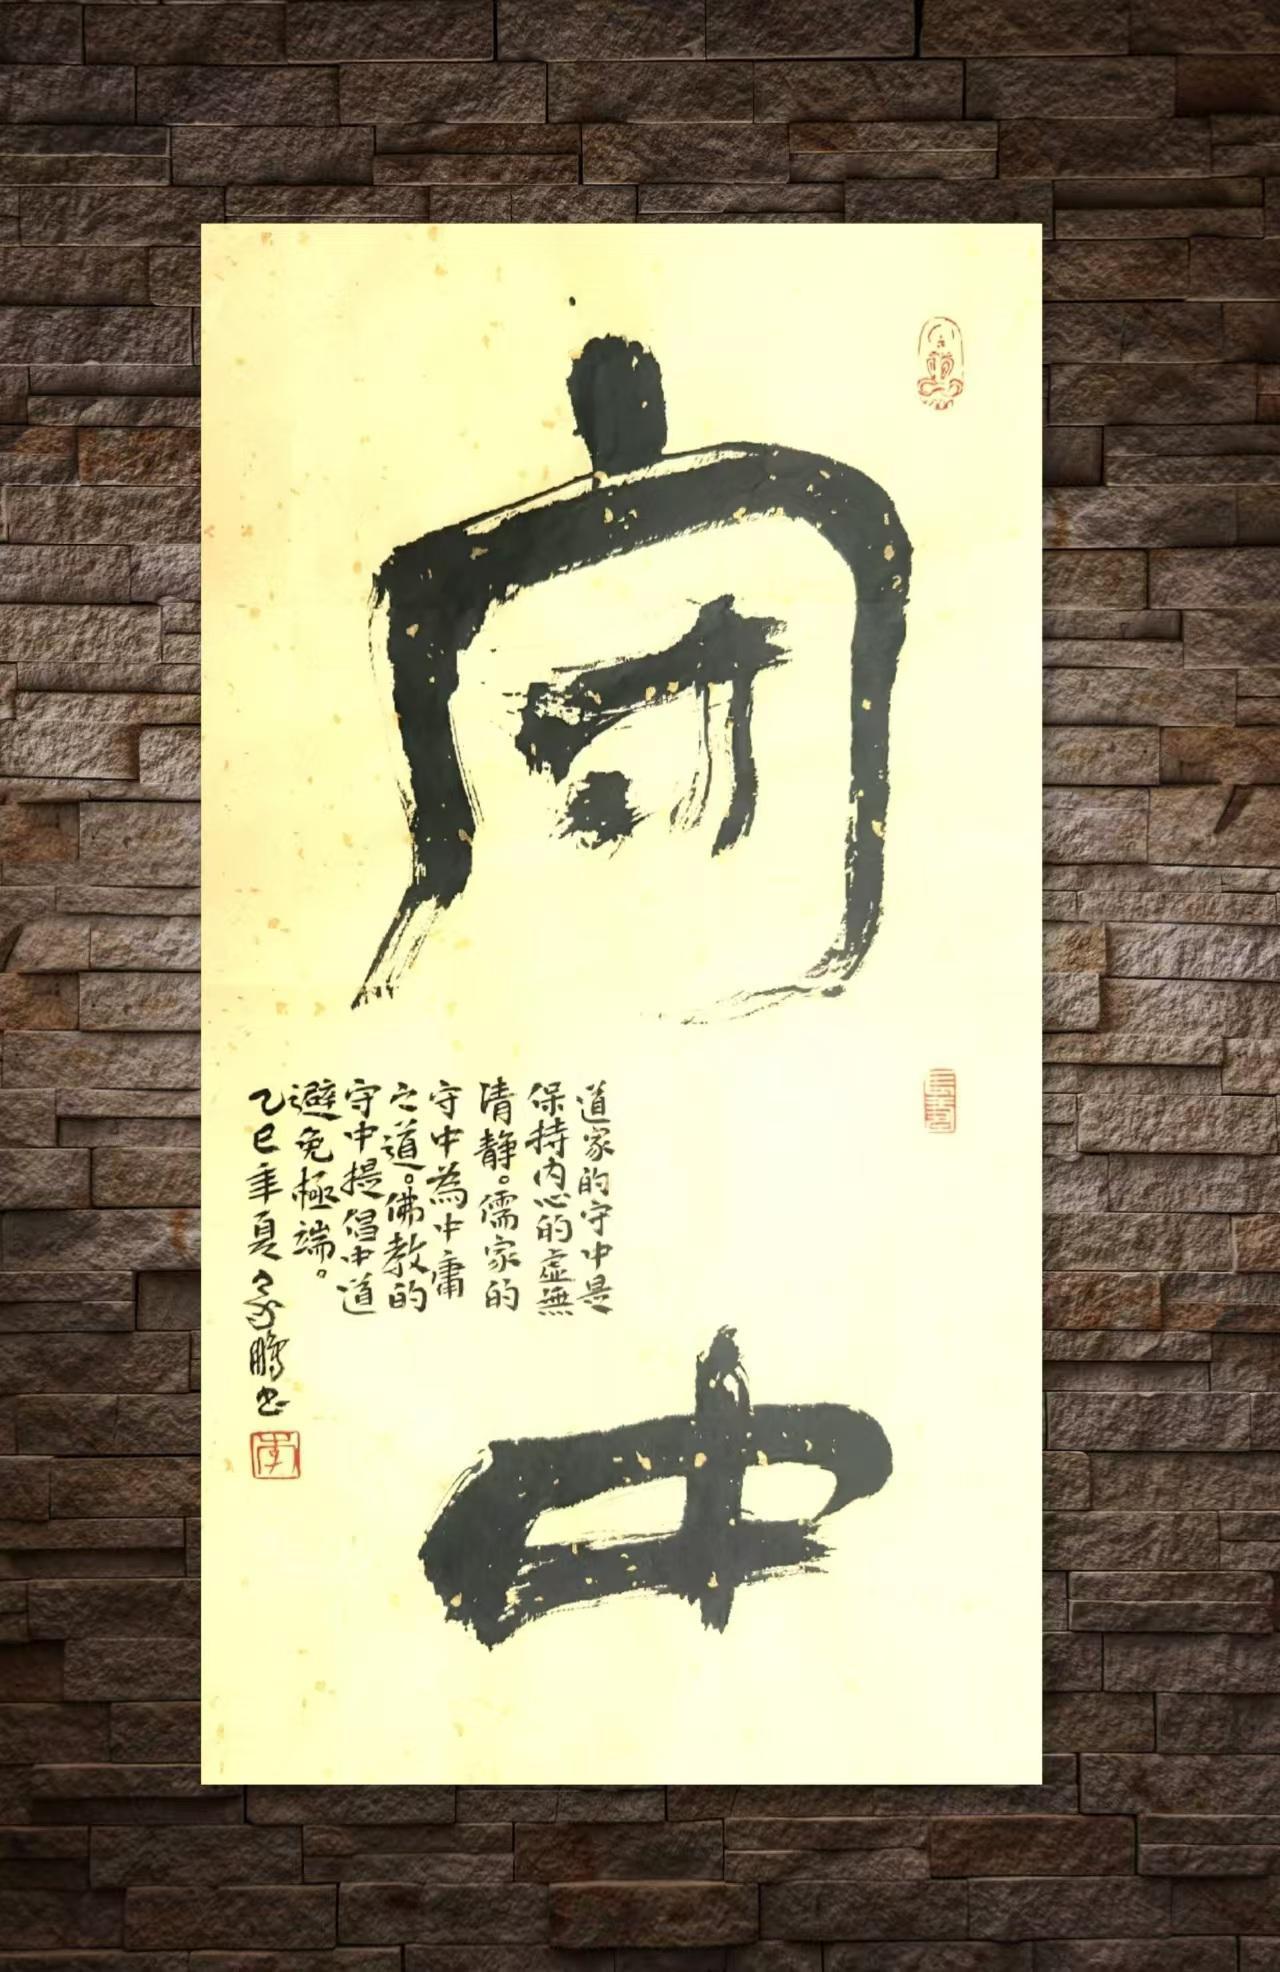 守中
道家的守中是
保持内心的虛無
清静。儒家的
守中為中庸
之道。佛教的
守中提倡中道
避免極端。
乙巳年夏家鵬书
李